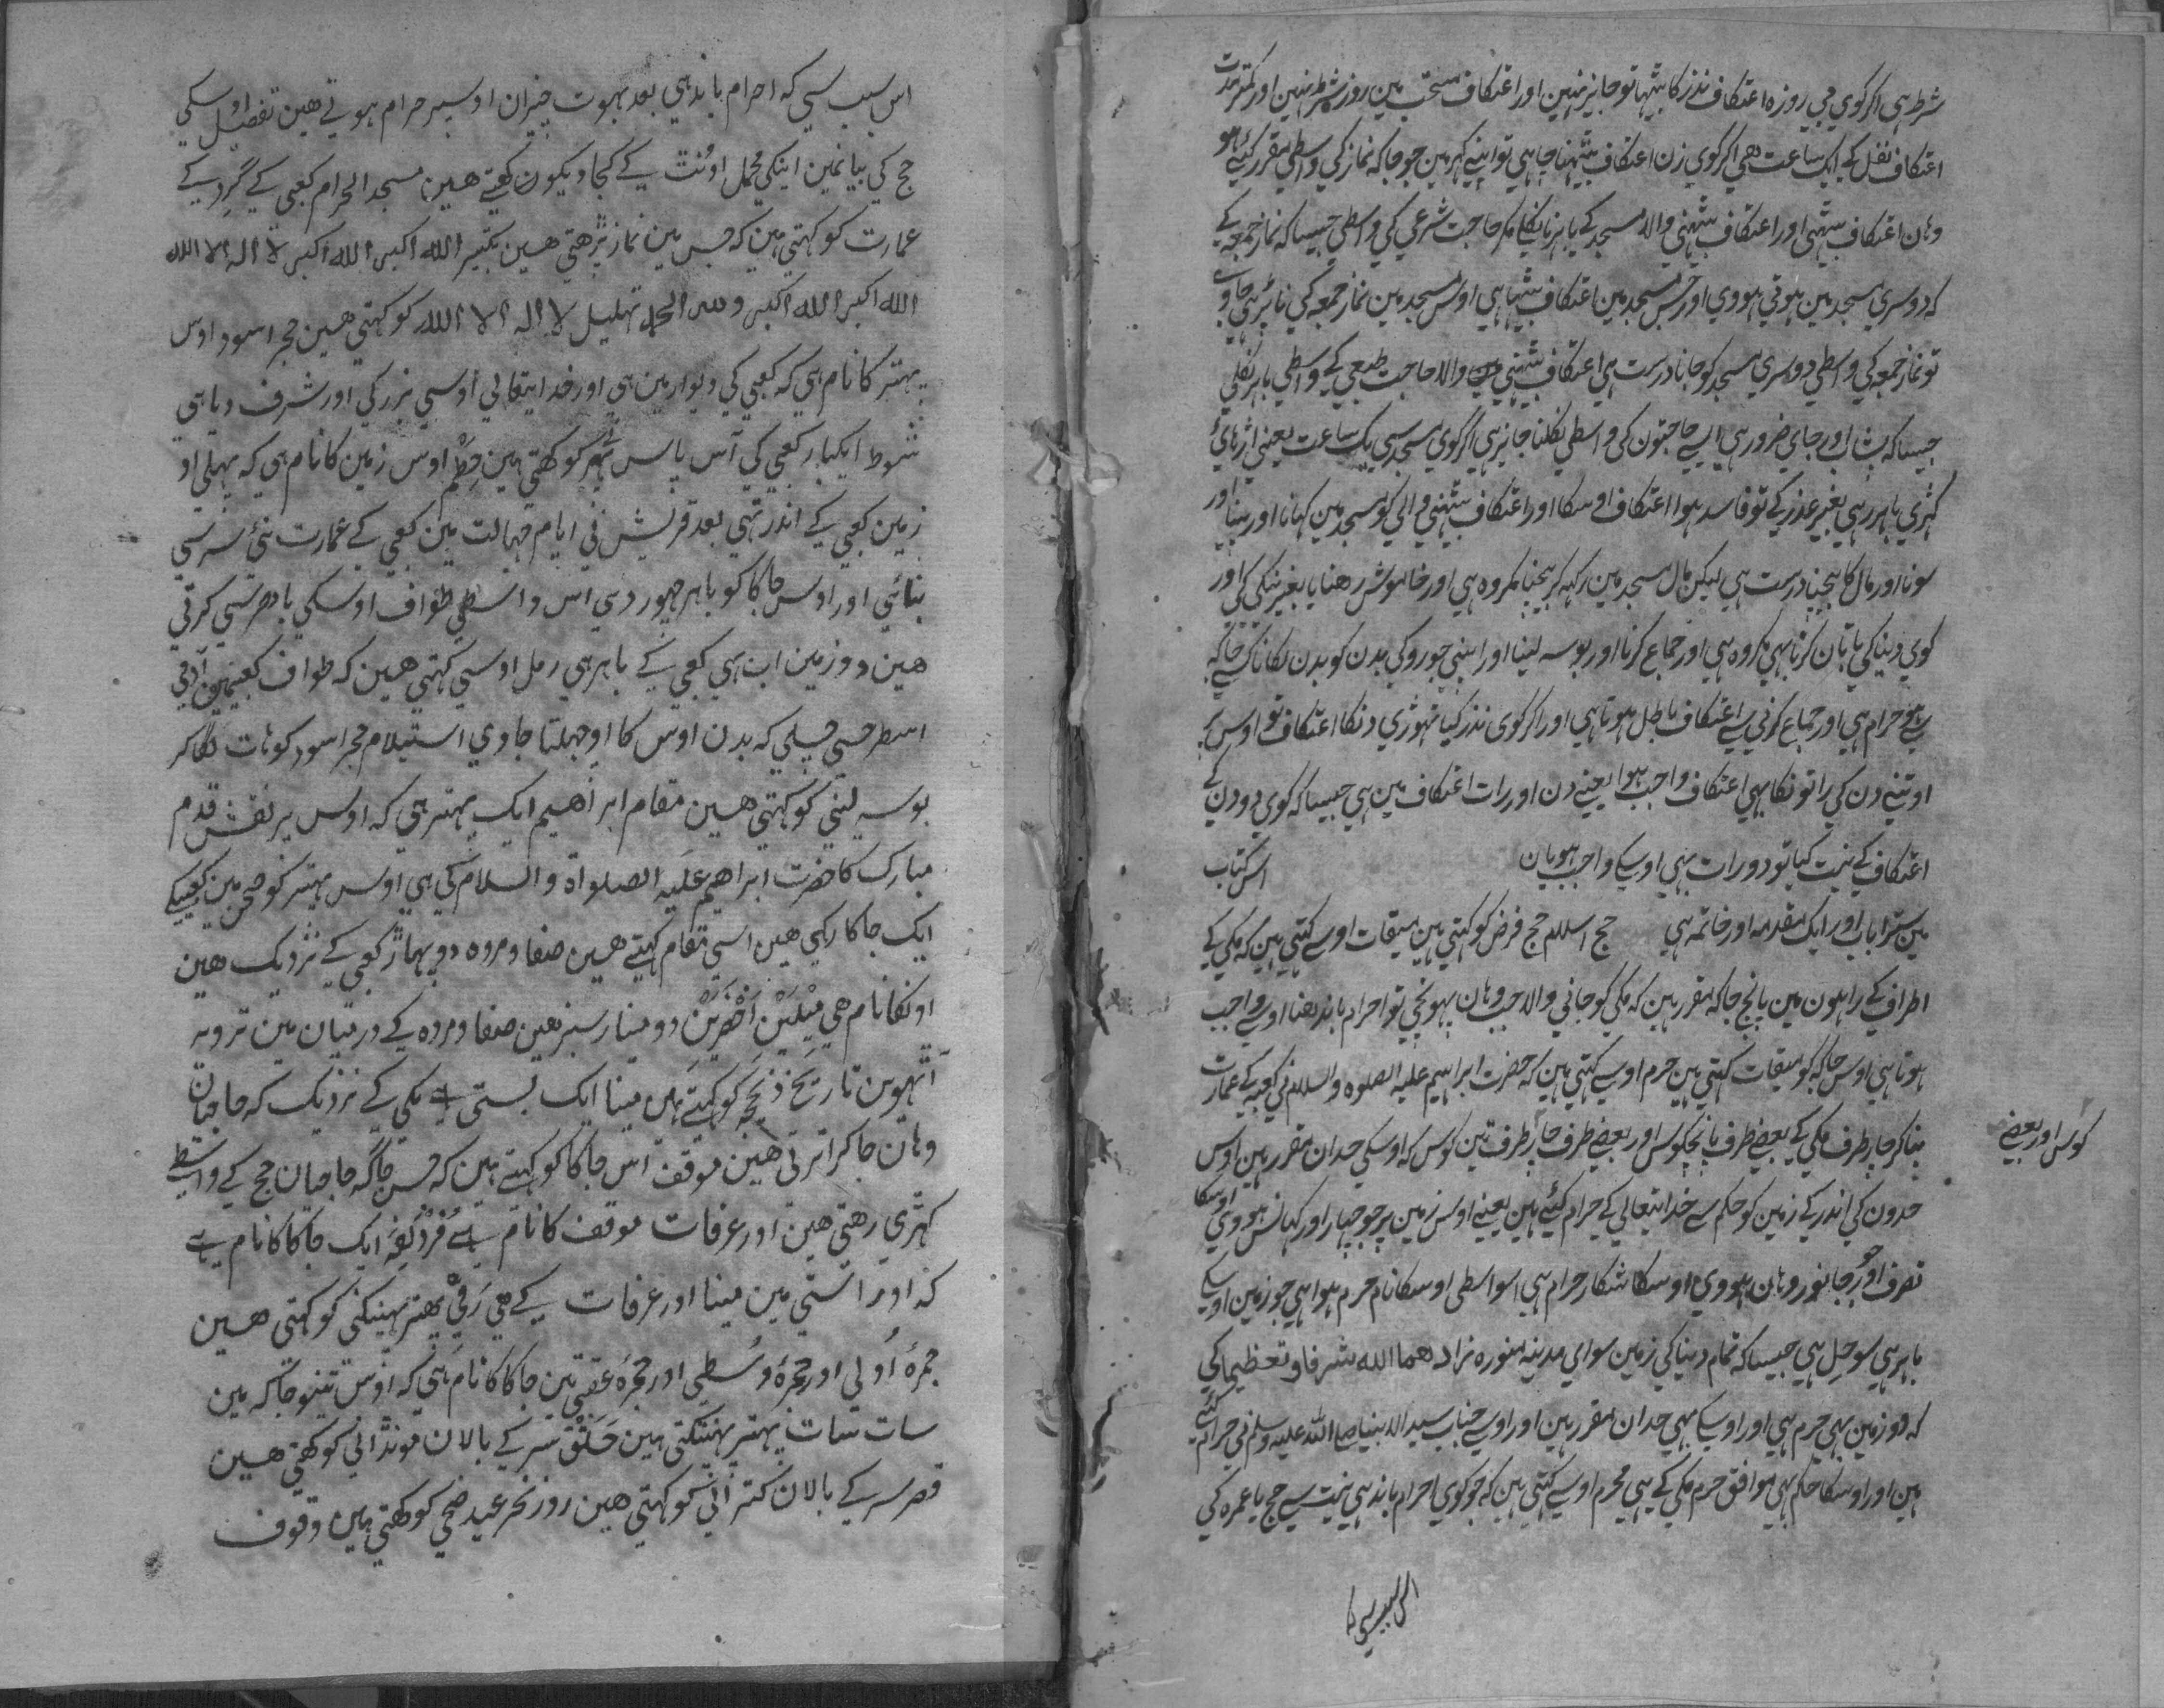 شرط ہی اکر کوی بی روزہ اعتکاف نذر کا بیٹھا تو جایز نہین اور اعتکاف مستحب مین روزہ شرط نہین اور کمتر مدت
اعتکاف نفل کے ایک ساعت ھی اکر کوی زن اعتکاف بیٹھنا چاہی تو اپنے کہر مین جو جاکہ نماز کی واسطی مقرر کئے ہو
وہان اعتکاف بیٹھی اور اعتکاف بیٹھنی والا مسجد کے باہر نا نکلے مکر حاجت شرعی کی واسطی جیسا کہ نماز جمعہ کے
کہ دوسری مسجد مین ہوتی ہووی اور جس مسجد مین اعتکاف بیٹھا ہی اوس مسجد مین نماز جمعہ کی نا پڑہی جاوے
تو نماز جمعہ کی واسطی دوسری مسجد کو جانا درست ہی اعتکاف بیٹھنی والا حاجت طبعی کے واسطی باہر نکلی
جیسا کہ پشاب اور جای ضرور ہی ایسے حاجتون کی واسطی نکلنا جایز ہی اکر کوی مسجد سی یک ساعت یعنے اڑہائی
کہڑی باہر رہی بغیر عذر کے تو فاسد ہوا اعتکاف اوسکا اور اعتکاف بیٹھنی والی کو مسجد مین کہانا اور پینا اور
سونا اور مال کا بیچنا درست ہی لیکن مال مسجد مین رکہہ کر بیچنا مکروہ ہی اور خاموش رھنا یا بغیر نیکی کی اور
کوی دنیا کی باتان کرنا بہی مکروہ ہی اور جماع کرنا اور بوسہ لینا اور اپنی جورو کی بدن کو بدن لکانا کسے جاکہ
سے ہو حرام ہی اور جماع کرنی سے اعتکاف باطل ہوتا ہی اور اکر کوی نذر کیا تہوڑی دنکا اعتکاف تو اوس پر
اوتنے دن کی راتونکا بہی اعتکاف واجب ہوا یعنے دن اور رات اعتکاف مین ہی جیسا کہ کوی دو دن کے
اعتکاف کے نیت کیا تو دو رات بہی اوسپے واجب ہویان اس کتاب
مین ستر اباب اور ایک مقدمہ اور خاتمہ ہی حج اسلام حج فرض کو کہتی ہین میقات اوسے کہتی ہین کہ مکی کے
اطراف کے راہون مین پانچ جاکہ مقرر ہین کہ مکی کو جانی والا جب وہان پہونچی تو احرام باندھنا اوسے واجب
ہوتا ہی اوس جاکہ کو میقات کہتی ہین حرم اوسے کہتی ہین کہ حضرت ابراہیم علیہ الصلوہ والسلام نی کعبہ کے عمارت
بنا کر چار طرف مکی کے بعضے طرف پانچ کوس اور بعضے طرف چار طرف تین کوس کہ اوسکی حدان مقرر ہین اوس
کوس اور بعضے
حدون کی اندر کے زمین کو حکم سے خدایتعالی کے حرام کئے ہین یعنے اوس زمین پر جو جہاڑ اور کہانس ہووی اوسکا
تصرف اور جو جانور وہان ہووی اوسکا شکار حرام ہی اسواسطی اوسکا نام حرم ہوا ہی جو زمین اوسکے
باہر ہی سو حِل ہی جیسا کہ تمام دنیا کی زمین سوای مدینہ منورہ زادھما اللہ شرفا و تعظیما کی
کہ وو زمین بہی حرم ہی اور اوسکے بہی حدان مقرر ہین اور اوسے جناب سید الانبیا صلے اللہ علیہ وسلم نی حرام کئے
ہین اور اوسکا حکم بہی موافق حرم مکی کے ہی محرم اوسے کہتی ہین کہ جو کوی احرام باندہی نیت سے حج یا عمرہ کی
اس سبب سی کہ احرام باندہی بعد بہوت چیزان اوسپر حرام ہوتے ھین تفصیل اوسکی
حج کی بیانمین اینکی محمل اونٹ کے کجاویکون کہتے ھین مسجد الحرام کعبی کے گرد کے
عمارت کو کہتی ہین کہ جس مین نماز پڑھتی ھین تکبیر اللہ اکبر اللہ اکبر لا الہ الا اللہ
اللہ اکبر اللہ اکبر و للہ الحمد تہلیل لا الہ الا اللہ کو کہتی ھین حجر اسود اوس
پہتر کا نام ہی کہ کعبی کی دیوار مین ہی اور خدایتعالی اوسی بزرکی اور شرف دیا ہی
شوط ایکبار کعبی کی آس پاس پھرنے کو کھتی ہین حِطِم اوس زمین کا نام ہی کہ پہلی او
زمین کعبی کے اندر تہی بعد قریش نی ایام جہالت مین کعبی کے عمارت نئی سر سی
بنائی اور اوس جاکا کو باہر چہوڑ دی اس واسطی طواف اوسکی باھر سی کرتی
ھین وو زمین اب ہی کعبی کے باہر ہی رمل اوسی کہتی ھین کہ طواف کعبیمین آدمی
اسطرحسی چلی کہ بدن اوس کا اوچہلتا جاوی استیلام حجر اسود کو ہات لگا کر
بوسہ لینی کو کہتی ھین مقام ابراھیم ایک پہتر ہی کہ اوس پر نقش قدم
مبارک کا حضرت ابراھیم علیہ الصلواۃ و السلام کی ہی اوس پہتر کو صحن مین کعبیکے
ایک جاکا رکہی ھین اسی مقام کہتے ھین صفا و مروہ دو پہاڑ کعبی کے نزدیک ھین
اونکا نام ھی مِیْلَیْن اَخْضَرَیْن دو مینار سبز ھین صفا و مروہ کے درمیان مین ترویہ
آٹہوین تاریخ ذیحجہ کو کہتے ہین مینا ایک بستی ہے مکی کے نزدیک کہ حاجیان
وہان جا کر اترتی ھین موقف اس جاکا کو کہتے ہین کہ جس جاگہ حاجیان حج کے واسطے
کہڑی رھتی ھین اور عرفات موقف کا نام ہے مُزْدَلِفَہ ایک جاکا کا نام ہے
کہ اور استی مین مینا اور عرفات کے ھی رَمِیْ پہتر پہینکنی کو کہتی ھین
جمرۂ اُولی اور جمرۂ وُسْطی اور جمرۂ عقبی تین جاکا کا نام ہی کہ اوس تینو جاکہ مین
سات سات پہتر پہینکتی ہین حَلْق سر کے بالان مونڈانی کو کھتی ھین
قصر سر کے بالان کترانی کو کہتی ھین روز نحر عید ضحی کو کھتی ہین وقوف